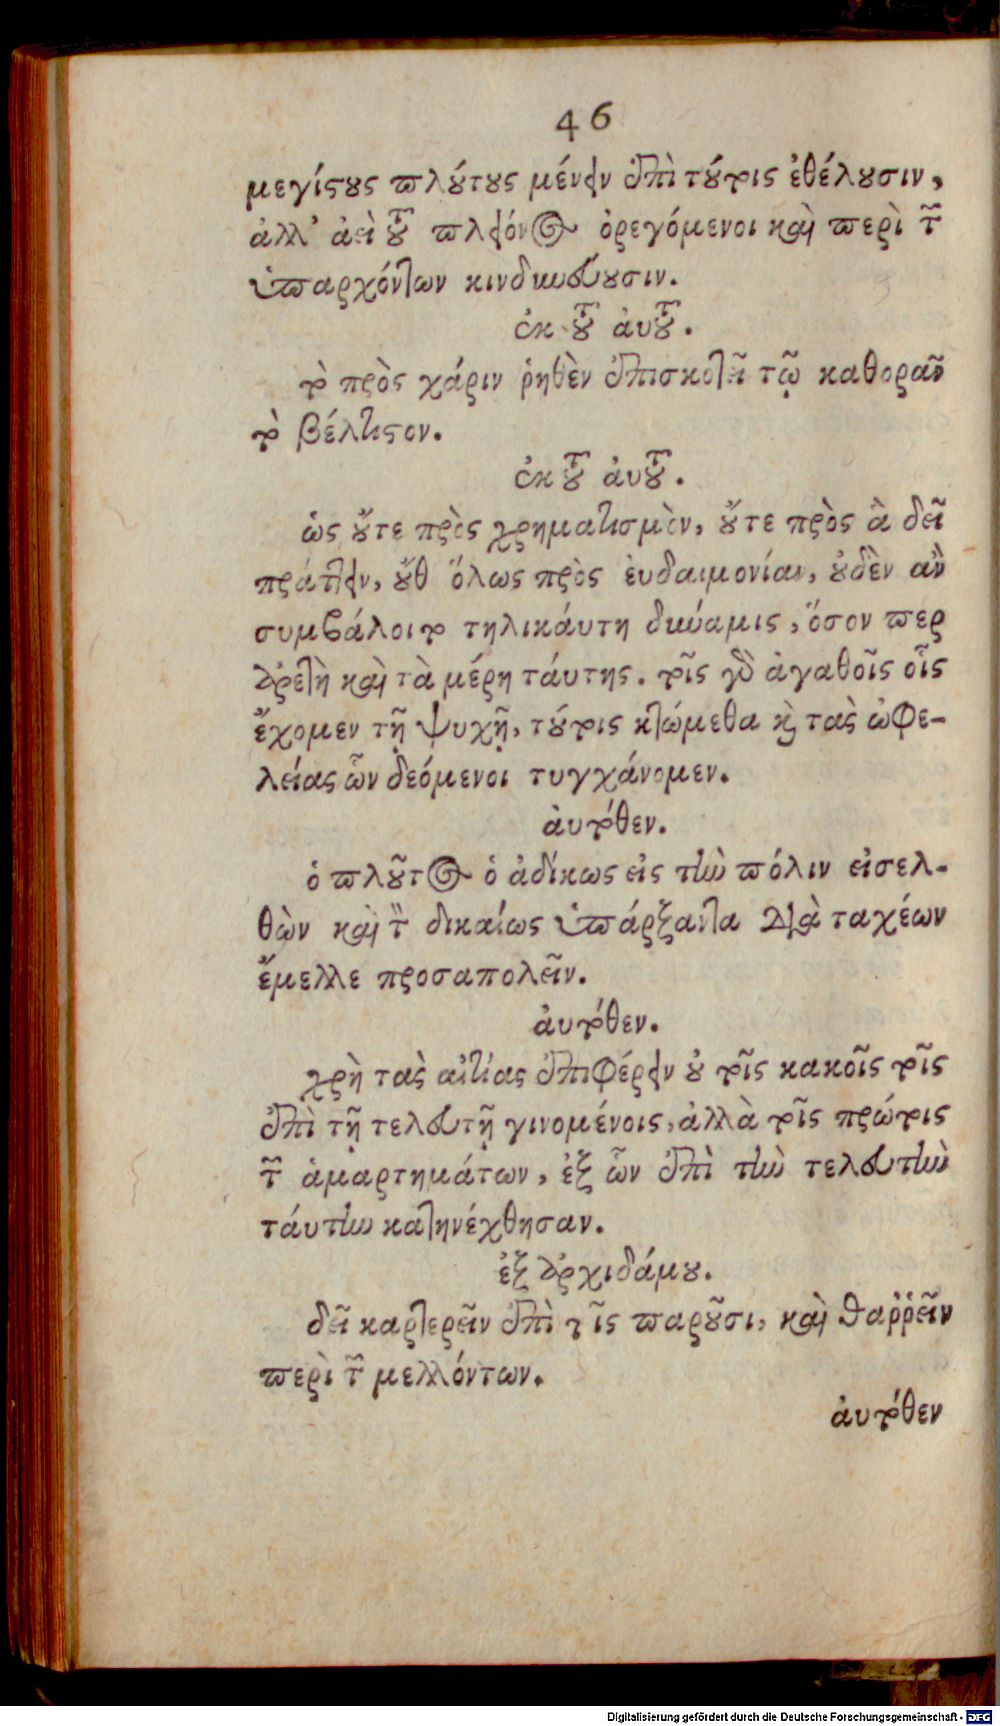 46
μεγίςȣς ϖλȣ́τȣς μένειν ἐπὶ τȣ́τοις ἐθέλȣσιν,
ἀλλ' ἀεὶ τȣ͂ ϖλείονος ὀρεγόμενοι καὶ ϖερὶ τῶν
ὑϖαρχόντων κινδυνεύȣσιν.
ἐκ τȣ͂ ἀυτȣ͂.
τὸ πρὸς χάριν ῥηθὲν ἐπισκοτεῖ τῷ καθορᾶν
τὸ βέλτιςον.
ἐκ τȣ͂ ἀυτȣ͂.
ὡς ȣ̓́τε πρὸς χρηματισμὸν, ȣ̓́τε πρὸς ἃ δεῖ
πράττειν, ȣ̓́θ ὅλως πρὸς ἐυδαιμονίαν, ȣ̓δὲν ἂν
συμβάλοιτο τηλικάυτη δύναμις, ὅσον ϖερ
ἀρετὴ καὶ τὰ μέρη τάυτης. τοῖς γὸ ἀγαθοῖς οἷς
ἔχομεν τῇ ψυχῇ, τȣ́τοις κτώμεθα κὶ τὰς ὠφε-
λείας ὧν δεόμενοι τυγχάνομεν.
ἀυτόθεν.
ὁ ϖλȣ͂τος ὁ ἀδίκως εἰς τὴν ϖόλιν εἰσελ-
θὼν καὶ τὸν δικαίως ὑϖάρξαντα διὰ ταχέων
ἔμελλε προσαπολεῖν.
ἀυτόθεν.
χρὴ τὰς αἰτίας ἐπιφέρειν ȣ̓ τοῖς κακοῖς τοῖς
ἐπὶ τῇ τελευτῇ γινομένοις, ἀλλὰ τοῖς πρώτοις
τῶν ἁμαρτημάτων, ἐξ ὧν ἐπὶ τὴν τελευτὴν
τάυτην κατηνέχθησαν.
ἐξ ἀρχιδάμȣ.
δεῖ καρτερεῖν ἐπὶ τοῖς ϖαρȣ͂σι, καὶ θαῤῥεῖν
ϖερὶ τῶν μελλόντων.
ἀυτόθεν
Digitalisierung gefördert durch die Deutsche Forschungsgemeinschaft - DFG